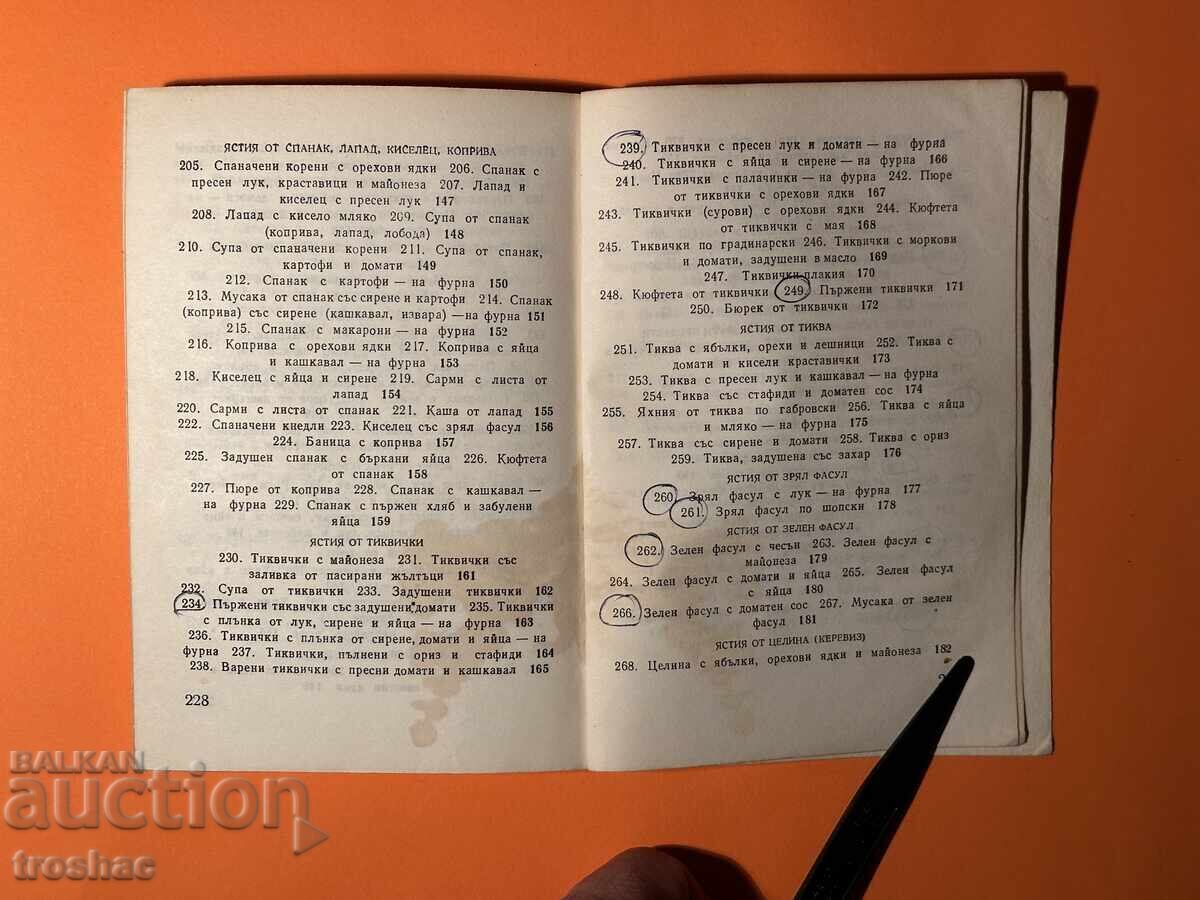 ЯСТИЯ ОТ СПАНАК, ЛАПАД, КИСЕЛЕЦ, КОПРИВА
205. Спаначени корени с орехови ядки 206. Спанак с
пресен лук, краставици и майонеза 207. Лапад и
киселец с пресен лук 147
208. Лапад с кисело мляко 209. Супа от спанак
(коприва, лапад, лобода) 148
210. Супа от спаначени корени 211. Супа от спанак,
картофи и домати 149
212. Спанак с картофи — на фурна 150
213. Мусака от спанак със сирене и картофи 214. Спанак
(коприва) със сирене (кашкавал, извара) —на фурна 151
215. Спанак с макарони — на фурна 152
216. Коприва с орехови ядки 217. Коприва с яйца
и кашкавал — на фурна 153
218. Киселец с яйца и сирене 219. Сарми с листа от
лапад 154
220. Сарми с листа от спанак 221. Каша от лапад 155
222. Спаначени кнедли 223. Киселец със зрял фасул 156
224. Баница с коприва 157
225. Задушен спанак с бъркани яйца 226. Кюфтета
от спанак 158
227. Пюре от коприва 228. Спанак с кашкавал —
на фурна 229. Спанак с пържен хляб и забулени
яйца 159
ЯСТИЯ ОТ ТИКВИЧКИ
230. Тиквички с майонеза 231. Тиквички със
заливка от пасирани жълтъци 161
232. Супа от тиквички 233. Задушени тиквички 162
234. Пържени тиквички със задушени домати 235. Тиквички
с плънка от лук, сирене и яйца — на фурна 163
236. Тиквички с плънка от сирене, домати и яйца — на
фурна 237. Тиквички, пълнени с ориз и стафиди 164
238. Варени тиквички с пресни домати и кашкавал 165
228
239. Тиквички с пресен лук и домати — на фурна
240. Тиквички с яйца и сирене — на фурна 166
241. Тиквички с палачинки — на фурна 242. Пюре
от тиквички с орехови ядки 167
243. Тиквички (сурови) с орехови ядки 244. Кюфтета
от тиквички с мая 168
245. Тиквички по градинарски 246. Тиквички с моркови
и домати, задушени в масло 169
247. Тиквички плакия 170
248. Кюфтета от тиквички 249. Пържени тиквички 171
250. Бюрек от тиквички 172
ЯСТИЯ ОТ ТИКВА
251. Тиква с ябълки, орехи и лешници 252. Тиква с
домати и кисели краставички 173
253. Тиква с пресен лук и кашкавал — на фурна
254. Тиква със стафиди и доматен сос 174
255. Яхния от тиква по габровски 256. Тиква с яйца
и мляко — на фурна 175
257. Тиква със сирене и домати 258. Тиква с ориз
259. Тиква, задушена със захар 176
ЯСТИЯ ОТ ЗРЯЛ ФАСУЛ
260. Зрял фасул с лук — на фурна 177
261. Зрял фасул по шопски 178
ЯСТИЯ ОТ ЗЕЛЕН ФАСУЛ
262. Зелен фасул с чесън 263. Зелен фасул с
майонеза 179
264. Зелен фасул с домати и яйца 265. Зелен фасул
с яйца 180
266. Зелен фасул с доматен сос 267. Мусака от зелен
фасул 181
ЯСТИЯ ОТ ЦЕЛИНА (КЕРЕВИЗ)
268. Целина с ябълки, орехови ядки и майонеза 182
BALKAN
auction
troshac